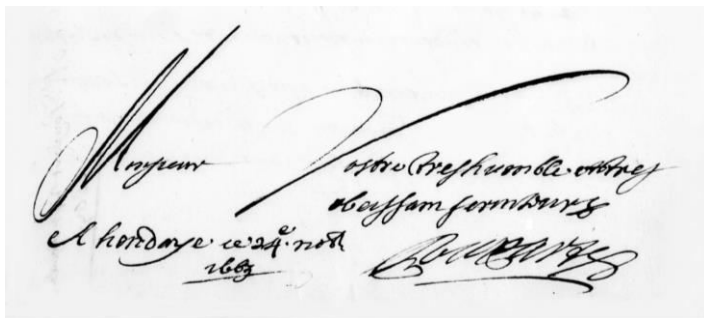 Monsieur
Vostre treshumble et tres
obeyssant serviteur
A hendaye ce 24e. no
1663